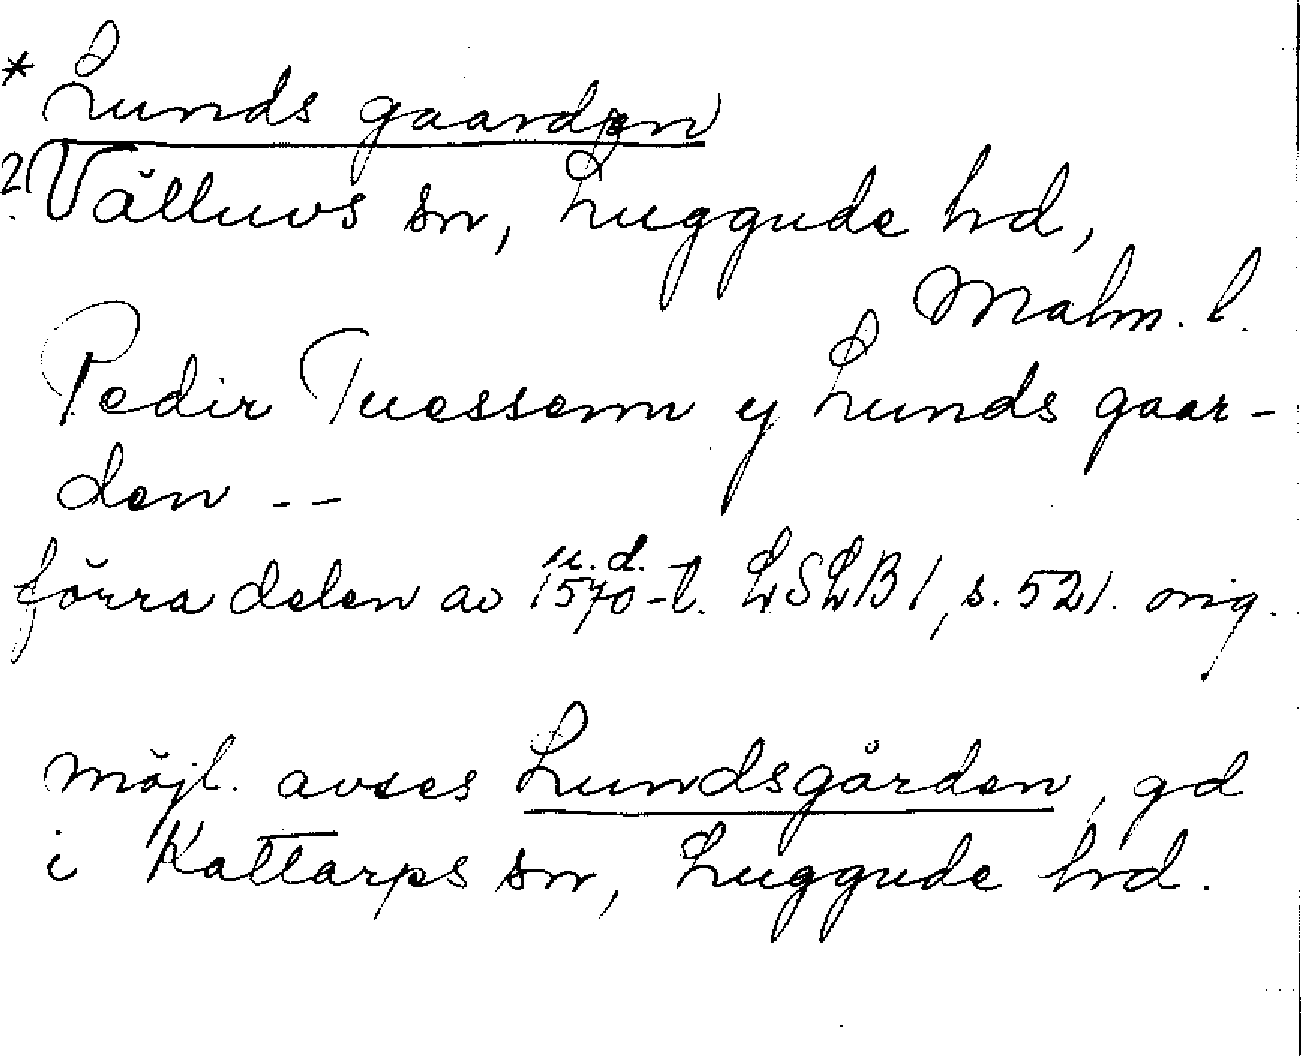 * Lunds gaarden
? Välluvs sn, Luggude hd,
Malm. l.
Pedir Tuessenn y Lunds gaar-
den --
u. d.
förra delen av 1570-t. LSLB 1, s. 521. orig.
möjl. avses Lundsgården, gd
i Kattarps sn, Luggude hd.